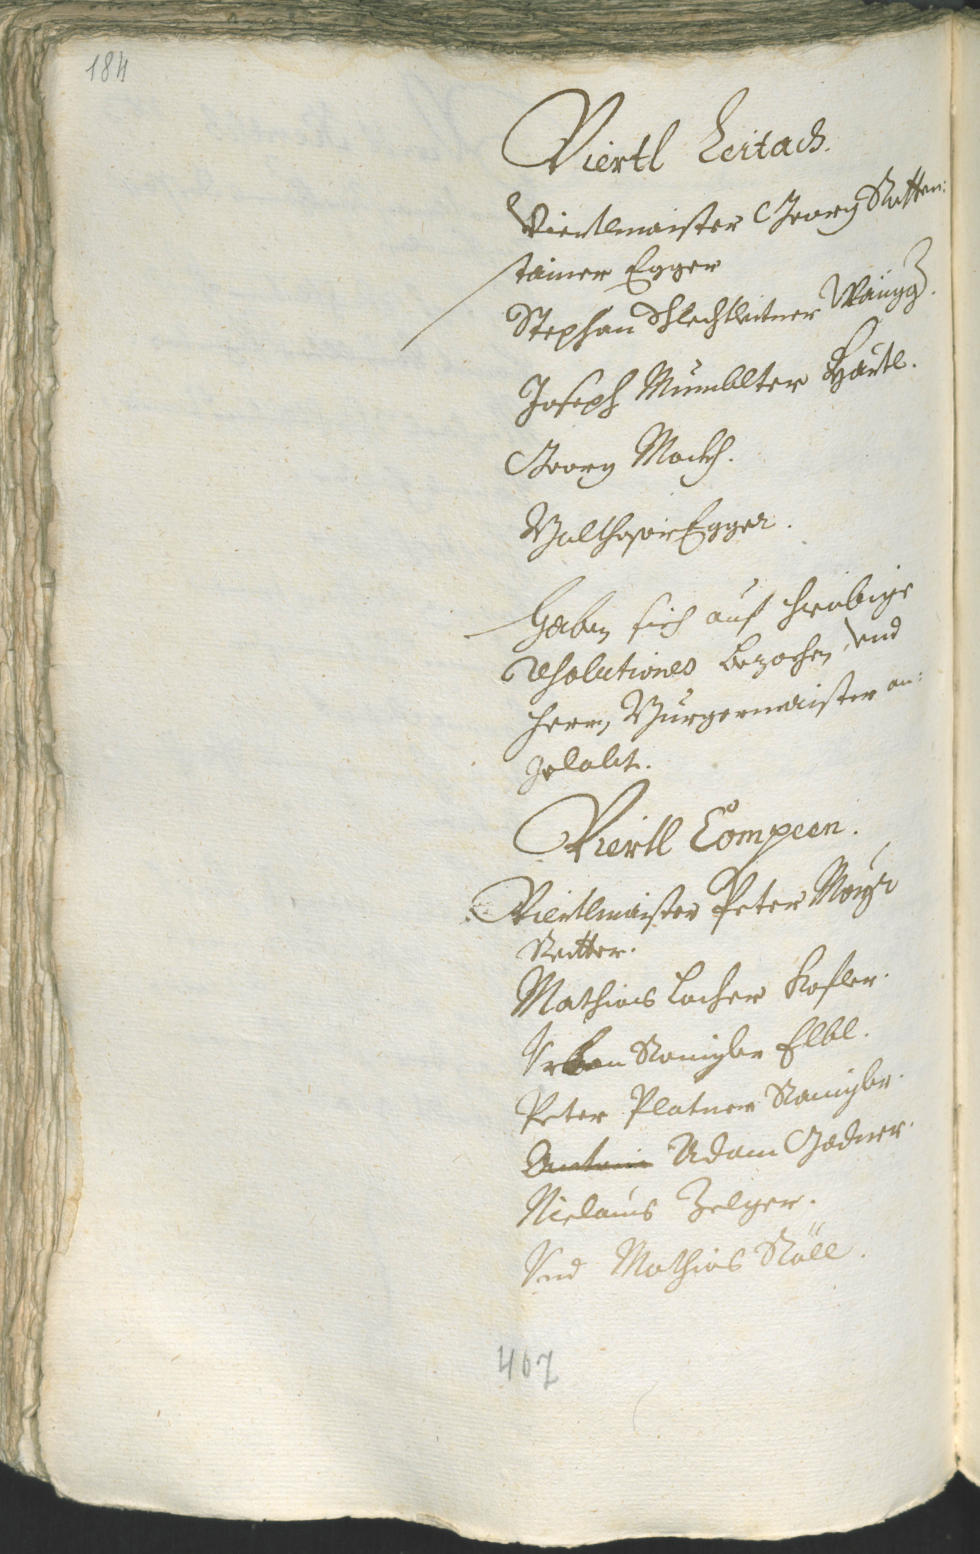 184
Viertl Leitach.
Viertlmaister Georg Rotten:
stainer Egger
Stephan Schlechtleitner Wangg.
Joseph Mumblter Häusl.
Georg Mock.
Balthasar Egger.
Haben sich auf hieobige
resolutiones bezochen, vnd
herrn Burgermaister an:
gelobt.
Viertl Compeen.
Viertlmaister Peter Mayr
Reitter.
Mathias Locher Kofler.
Vrban Ramigler Elbl.
Peter Platner Ramigler.
Adam Gadner.
Niclaus Zelger.
Vnd Mathias Röll.
467